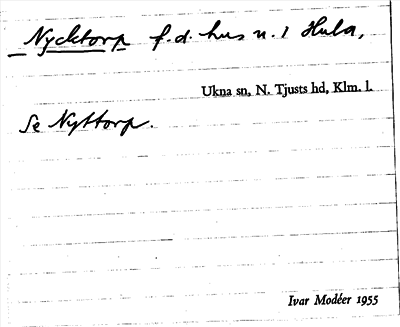 Nycktorp f.d. hus n. 1 Hula,
Ukna sn, N. Tjusts hd, Klm. l.
Se Nyttorp.
Ivar Modéer 1955